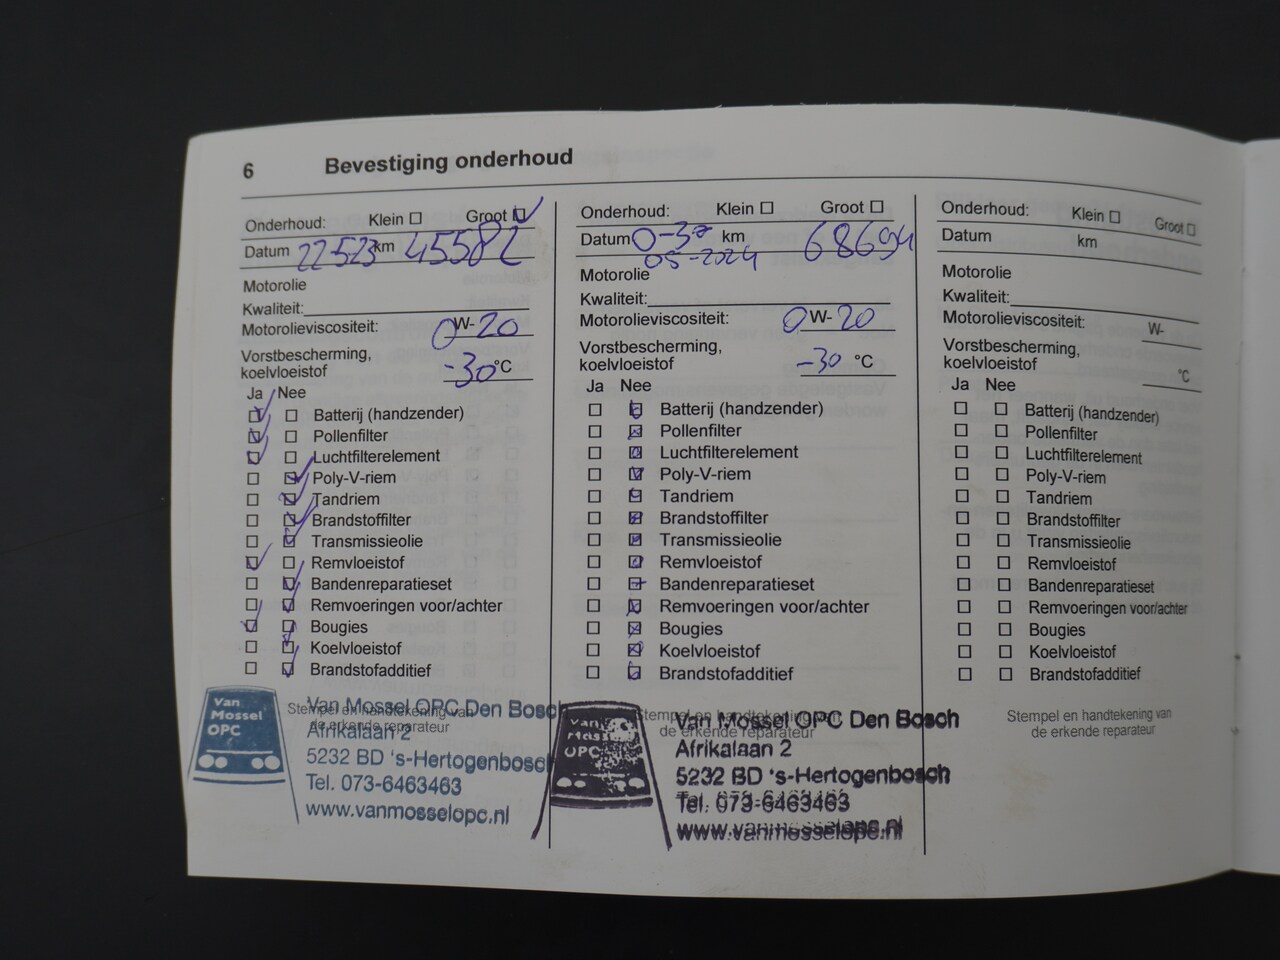 6 Bevestiging onderhoud
Onderhoud: Klein Groot
Datum 22-5-23 km 45582
Motorolie
Kwaliteit:
Motorolieviscositeit: 0W-20
Vorstbescherming,
koelvloeistof -30 °C
Ja Nee
Batterij (handzender)
Pollenfilter
Luchtfilterelement
Poly-V-riem
Tandriem
Brandstoffilter
Transmissieolie
Remvloeistof
Bandenreparatieset
Remvoeringen voor/achter
Bougies
Koelvloeistof
Brandstofadditief
Stempel en handtekening van
de erkende reparateur
Van
Mossel
OPC
Van Mossel OPC Den Bosch
Afrikalaan 2
5232 BD 's-Hertogenbosch
Tel. 073-6463463
www.vanmosselopc.nl
Onderhoud: Klein Groot
Datum km 68694
05-2024
Motorolie
Kwaliteit:
Motorolieviscositeit: 0W-20
Vorstbescherming,
koelvloeistof -30 °C
Ja Nee
Batterij (handzender)
Pollenfilter
Luchtfilterelement
Poly-V-riem
Tandriem
Brandstoffilter
Transmissieolie
Remvloeistof
Bandenreparatieset
Remvoeringen voor/achter
Bougies
Koelvloeistof
Brandstofadditief
Stempel en handtekening van
de erkende reparateur
Van
Mossel
OPC
Van Mossel OPC Den Bosch
Afrikalaan 2
5232 BD 's-Hertogenbosch
Tel. 073-6463463
www.vanmosselopc.nl
Onderhoud: Klein Groot
Datum km
Motorolie
Kwaliteit:
Motorolieviscositeit: W-
Vorstbescherming,
koelvloeistof °C
Ja Nee
Batterij (handzender)
Pollenfilter
Luchtfilterelement
Poly-V-riem
Tandriem
Brandstoffilter
Transmissieolie
Remvloeistof
Bandenreparatieset
Remvoeringen voor/achter
Bougies
Koelvloeistof
Brandstofadditief
Stempel en handtekening van
de erkende reparateur